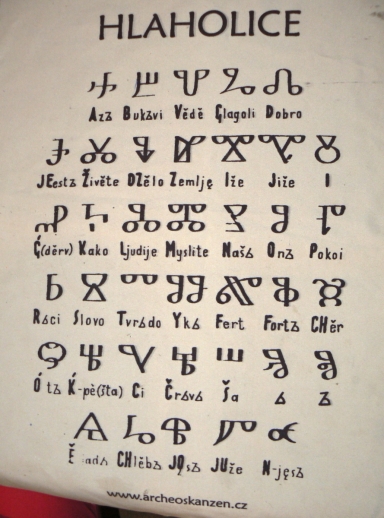 HLAHOLICE
Ⰰ Ⰱ Ⰲ Ⰳ Ⰴ
Azъ Bukъvi Vědě Glagoli Dobro
Ⰵ Ⰶ Ⰷ Ⰸ Ⰹ Ⰺ Ⰻ
JEestъ Živěte DZělo Zemlję Iže Jiže I
Ⰼ Ⰽ Ⰾ Ⰿ Ⱀ Ⱁ Ⱂ
Ǵ(děrv) Kako Ljudije Myslite Našь Onъ Pokoi
Ⱃ Ⱄ Ⱅ Ⱆ Ⱇ Ⱈ
Rъci Slovo Tvrьdo Ykъ Fert Fortъ CHěr
Ⱉ Ⱋ Ⱌ Ⱍ Ⱎ Ⱐ Ⱏ
Ótъ Ḱ-pě(šta) Ci Črьvь Ša ь ъ
Ⱑ Ⱒ Ⱓ
Ě adь CHlěbъ JQsъ JUže N-jęsъ
www.archeoskanzen.cz